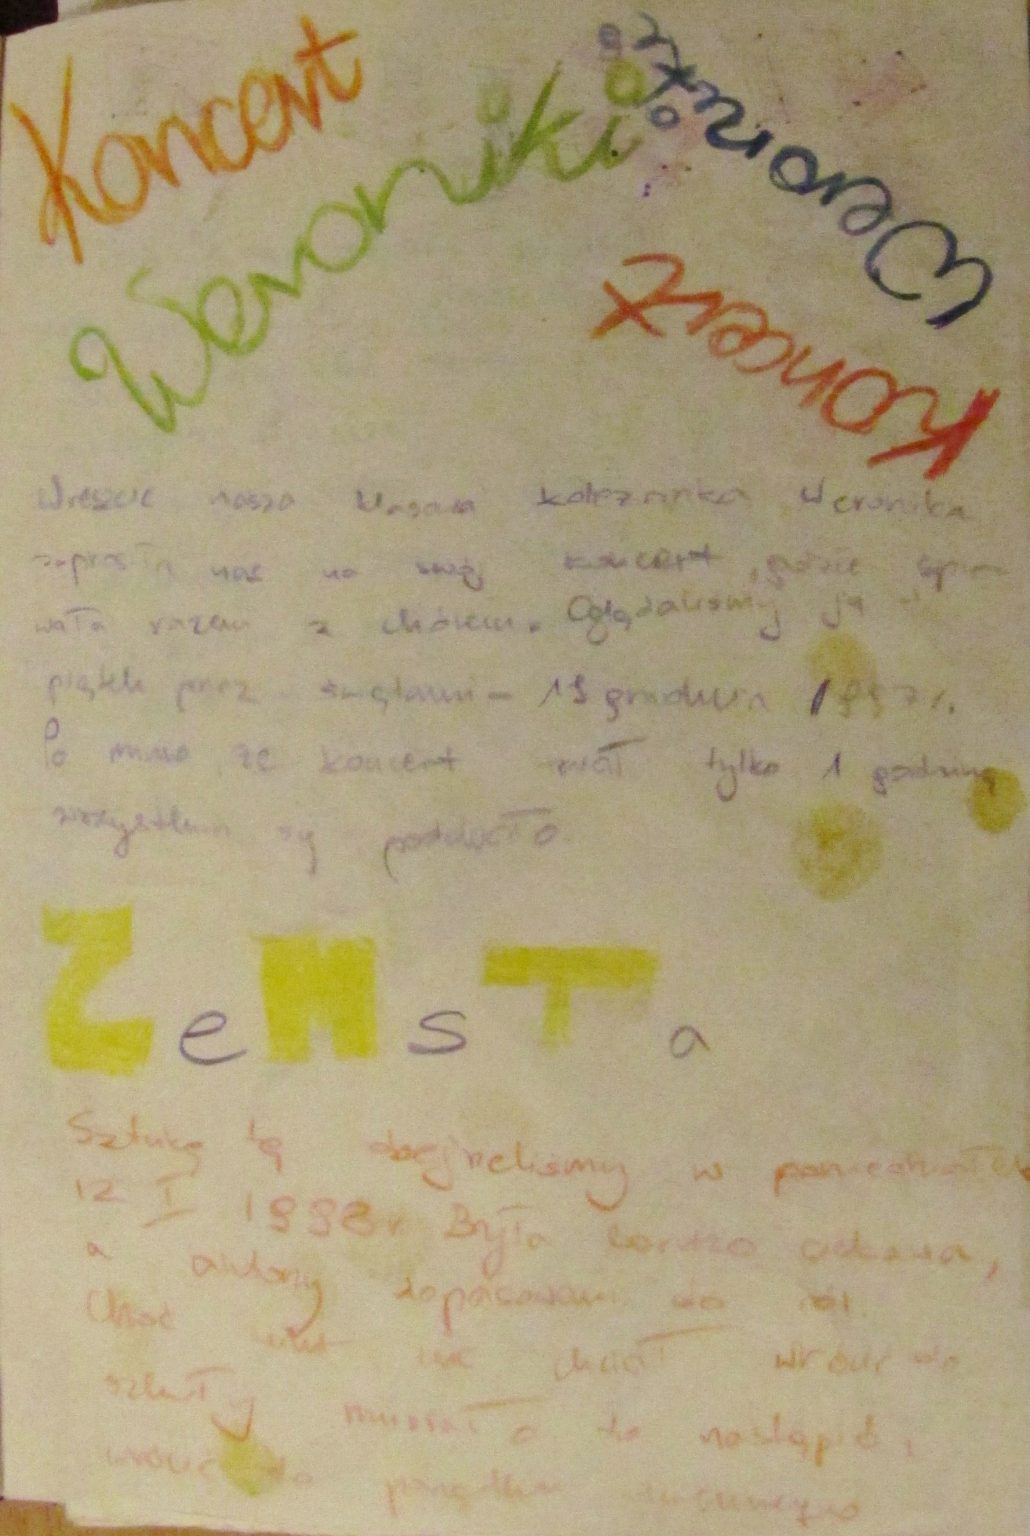 Koncert
Weroniki
Weroniki
Koncert
nasza koleżanka Weronika
zaprosiła nas na swój koncert, gdzie śpie
wała razem z chórem. Oglądaliśmy ją
piątek przez świętami - 19 grudnia 1997 r.
Po mimo że koncert trwał tylko 1 godzinę
wszystkim się podobało
ZeMsTa
Sztukę tą obejrzeliśmy w poniedziałek
12 I 1998 r Była bardzo ciekawa,
a aktorzy dopasowani do ról.
Choć nikt nie chciał wrócić do
szkoły musiało to nastąpić,
wrócić do porządku